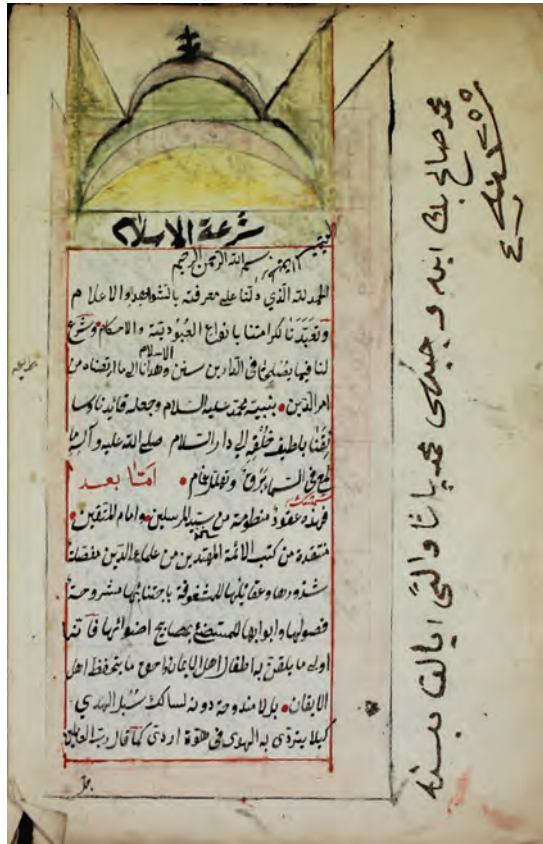 شرعة الاسلام
بسم الله الرحمن الرحيم
الحمد لله الذي دلنا على معرفته بالشواهد والاعلام
وتعبدنا كرامة لنا بانواع العبودية والاحكام وشرع
لنا فيما في الدارين سنن الاسلام وهدانا الى ما ارتضاه من
امر الدين بنبيه محمد عليه السلام وجعله قائدنا
بلطيف خلقه الى دار السلام صلى الله عليه وآله ما
لمع في السماء برق وتهلل غمام اما بعد
فهذه عقود منظومة من سنن سيد المرسلين وامام المتقين
منتقدة من كتب الائمة المهتدين من علماء الدين مفصلة
شذورها وعقائلها للمشغوفة باجتنائها مشروحة
فصولها وابوابها للمستضئ بمصابيح اضوائها فانها
اولى ما يلقن به اطفال اهل الايمان واحق ما يتحفظ اهل
الايقان بل لا مندوحة دونه لسالك سبل الهدي
كيلا يتردى به الهوى في هوة الردى كما قال رب العالمين
محمد صالح بك ابنه و محمد پاشا والئ ايالت